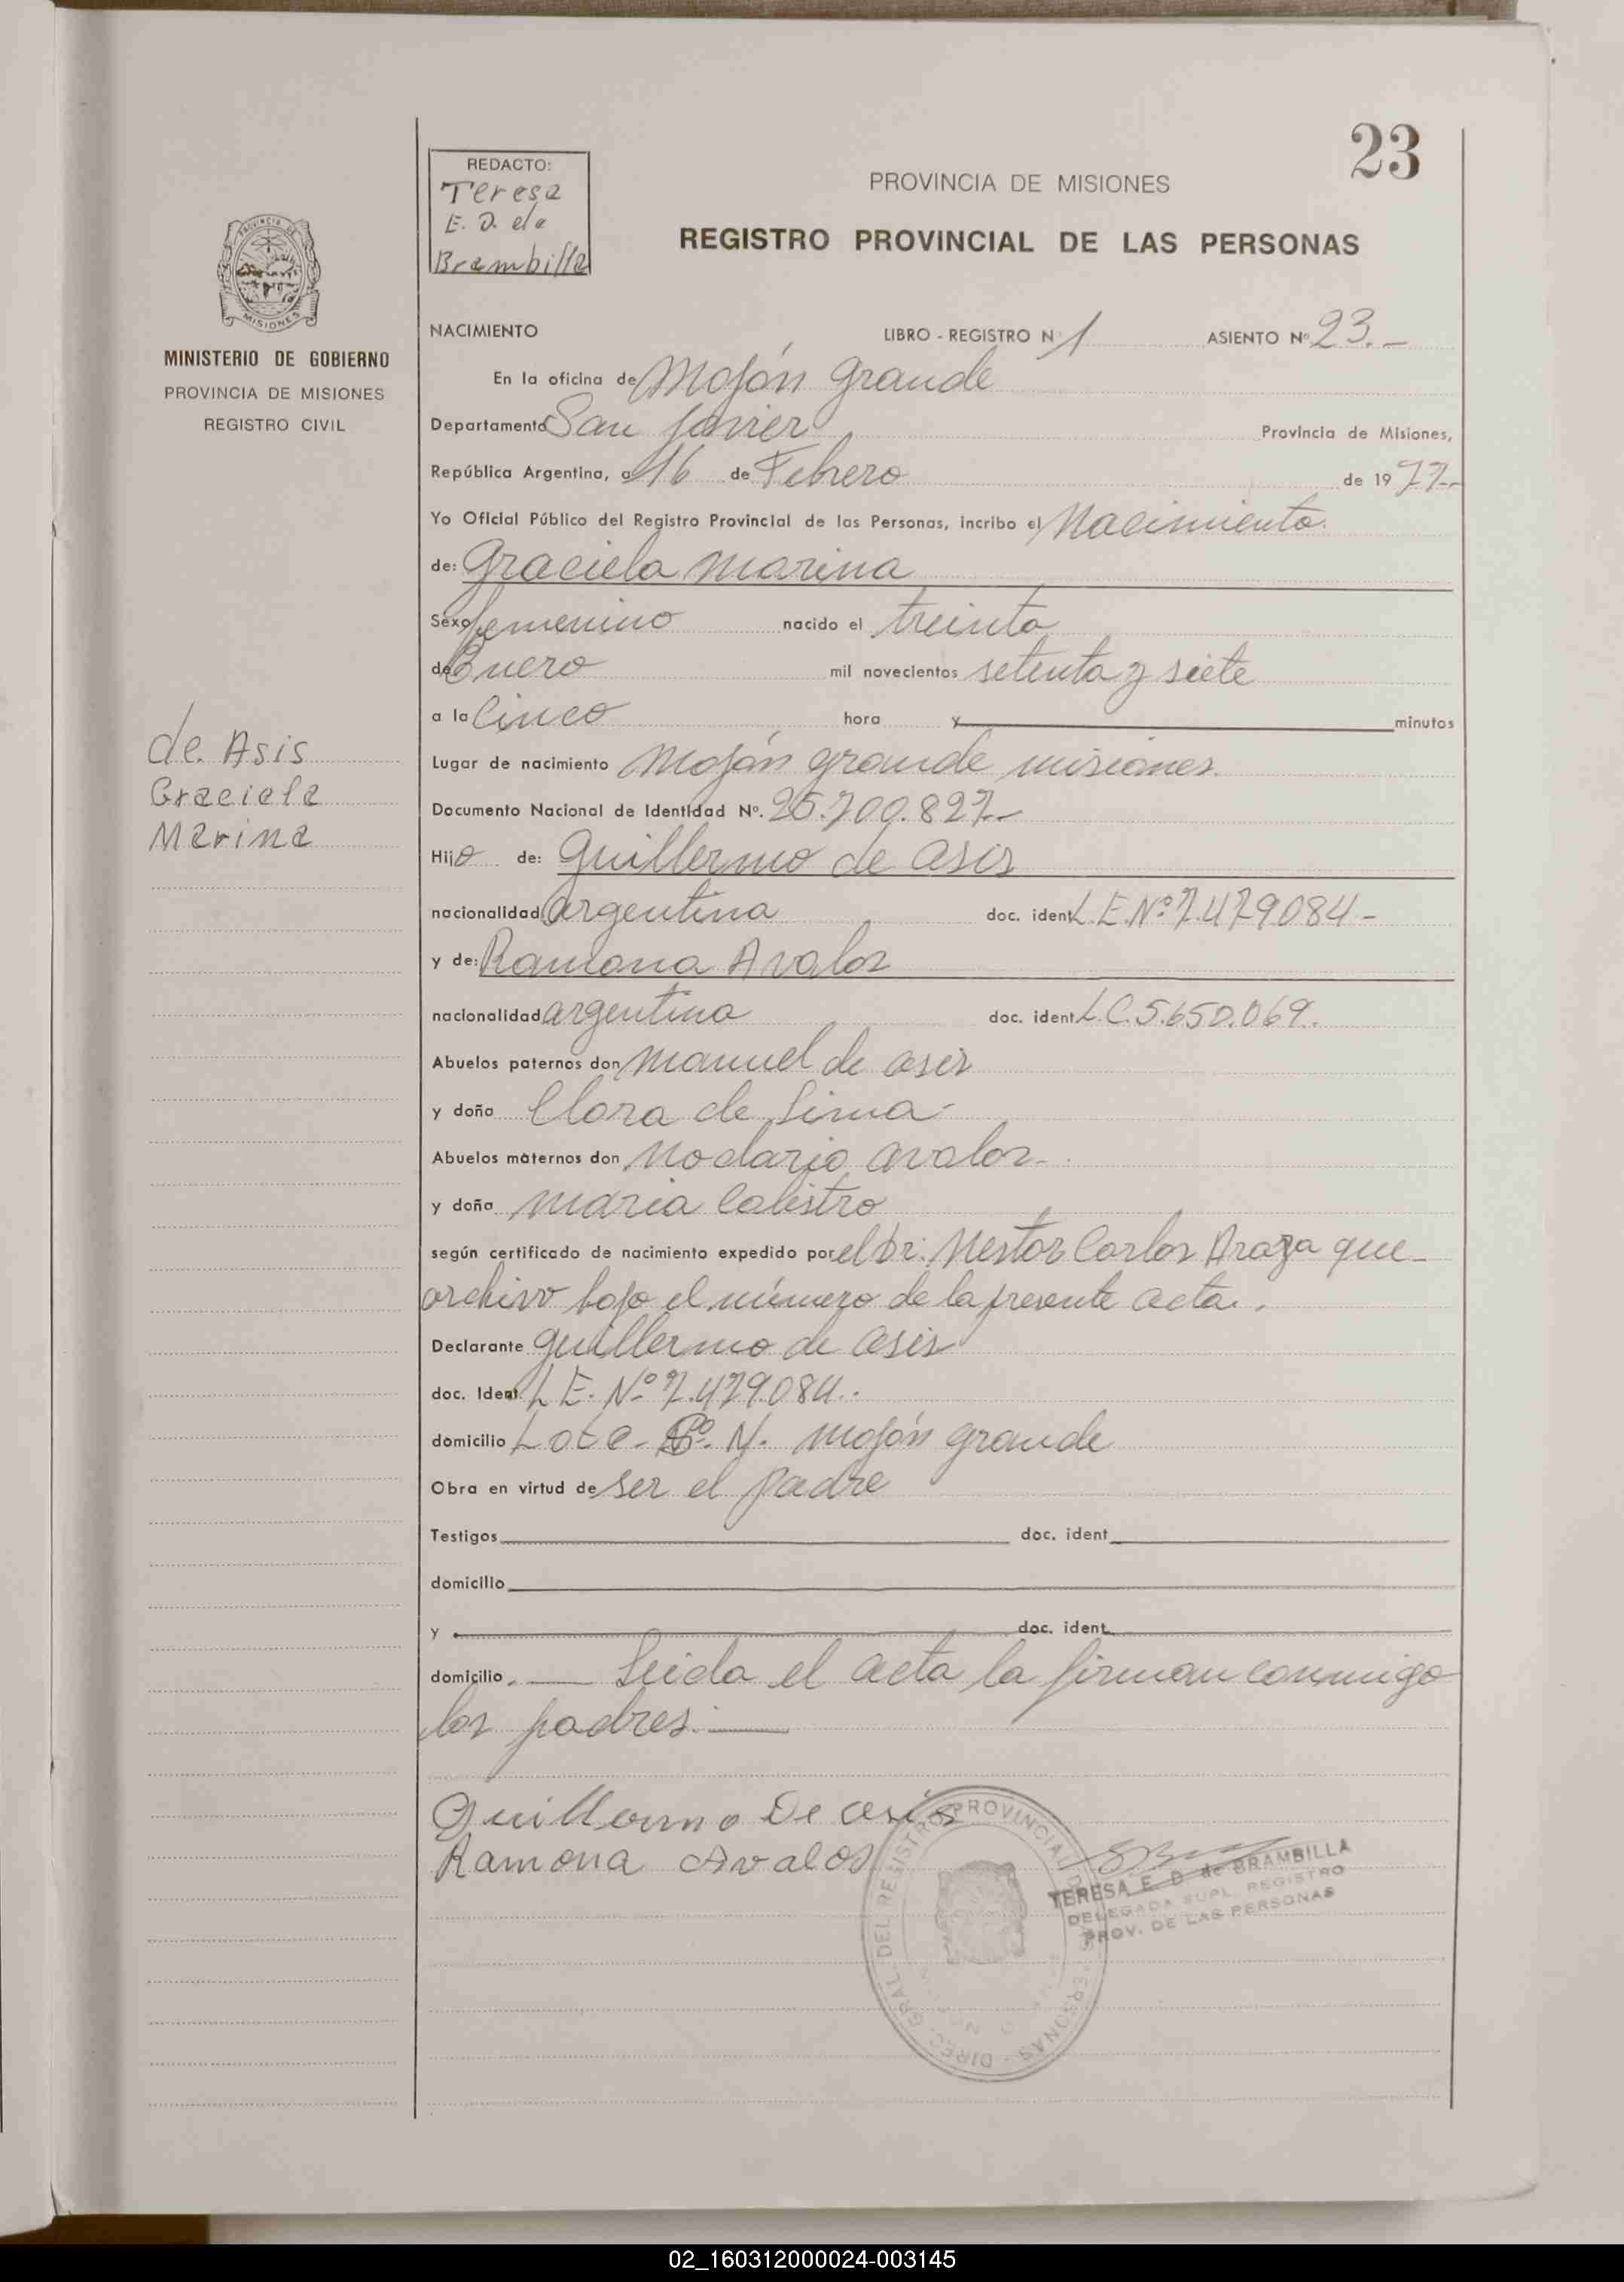 23
REDACTO:
Teresa
E. D. de
Brambilla
PROVINCIA DE MISIONES
REGISTRO PROVINCIAL DE LAS PERSONAS
PROVINCIA DE
MISIONES
MINISTERIO DE GOBIERNO
PROVINCIA DE MISIONES
REGISTRO CIVIL
de Asis
Graciela
Marina
NACIMIENTO LIBRO - REGISTRO Nº 1 ASIENTO Nº 23.-
En la oficina de Mojón Grande
Departamento San Javier Provincia de Misiones,
República Argentina, a 16 de Febrero de 1977.-
Yo Oficial Público del Registro Provincial de las Personas, incribo el Nacimiento.
de: Graciela Marina
Sexo femenino nacido el treinta
de Enero mil novecientos setenta y siete
a la Cinco hora y minutos
Lugar de nacimiento Mojón grande misiones.
Documento Nacional de Identidad Nº. 25.700.827.-
Hijo de: Guillermo de Asis
nacionalidad Argentina doc. ident L.E.Nº 7.479084-
y de: Ramona Avalos
nacionalidad argentina doc. ident L.C.5.650.069.
Abuelos paternos don Manuel de asis
y doña Clara de Lima-
Abuelos maternos don Nodario avalos-
y doña maria Calistro
según certificado de nacimiento expedido por el Dr: Nestor Carlos Araza que
archivo bajo el número de la presente acta.
Declarante Guillermo de Asis
doc. Ident. L.E. Nº 7.479.084.
domicilio Lote Nº. Mojón grande
Obra en virtud de ser el padre
Testigos doc. ident
domicilio
y doc. ident.
domicilio. Leida el acta la firman conmigo
los padres.
Guillermo De asis
Ramona Avalos
DIREC. GRAL. DEL REGISTRO PROVINCIAL DE LAS PERSONAS
TERESA E. D. de BRAMBILLA
DELEGADA SUPL. REGISTRO
PROV. DE LAS PERSONAS
02_160312000024-003145